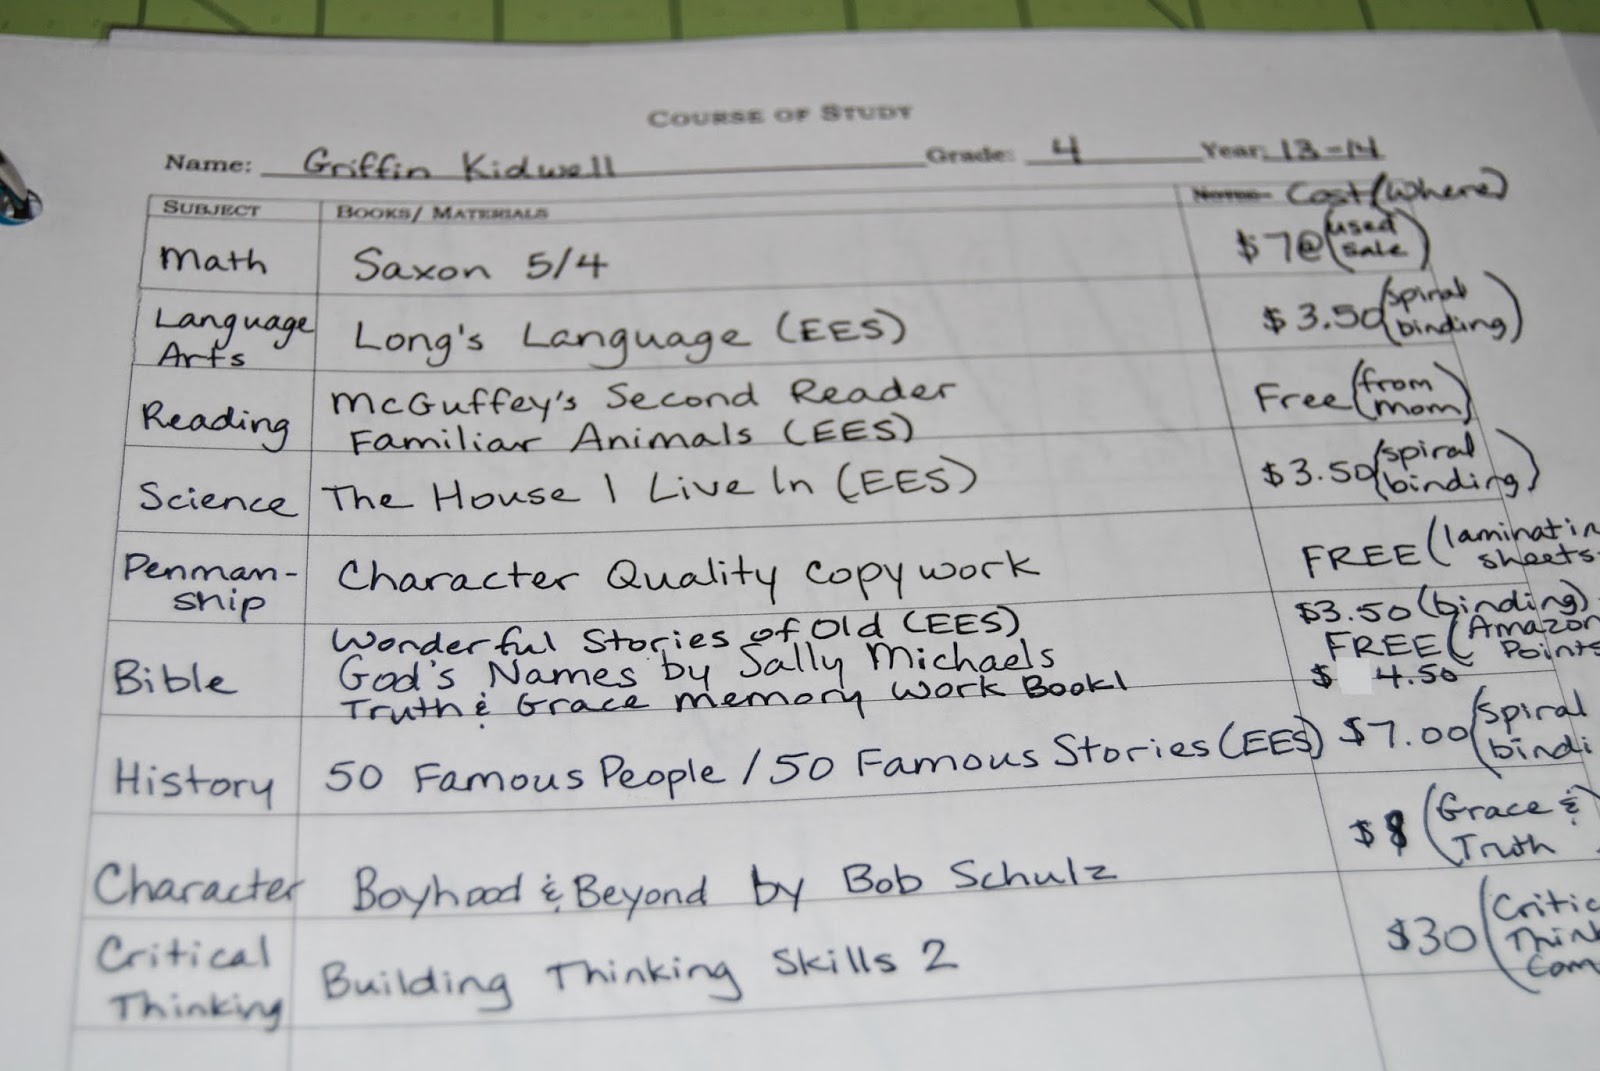 COURSE OF STUDY
Name: Griffin Kidwell Grade: 4 Year: 13-14
SUBJECT BOOKS/ MATERIALS Notes Cost (Where)
Math Saxon 5/4 $7@ (used sale)
Language Arts Long's Language (EES) $3.50 (spiral binding)
Reading McGuffey's Second Reader Free (from mom)
Familiar Animals (EES)
Science The House I Live In (EES) $3.50 (spiral binding)
Penman-ship Character Quality Copywork FREE (laminatin sheets
Bible Wonderful Stories of Old (EES) $3.50 (binding)
God's Names by Sally Michaels FREE (Amazon Points
Truth & Grace memory work Book 1 $ 4.50
History 50 Famous People / 50 Famous Stories (EES) $7.00 (spiral bindi
Character Boyhood & Beyond by Bob Schulz $8 (Grace & Truth
Critical Thinking Building Thinking Skills 2 $30 (Critic Think Com